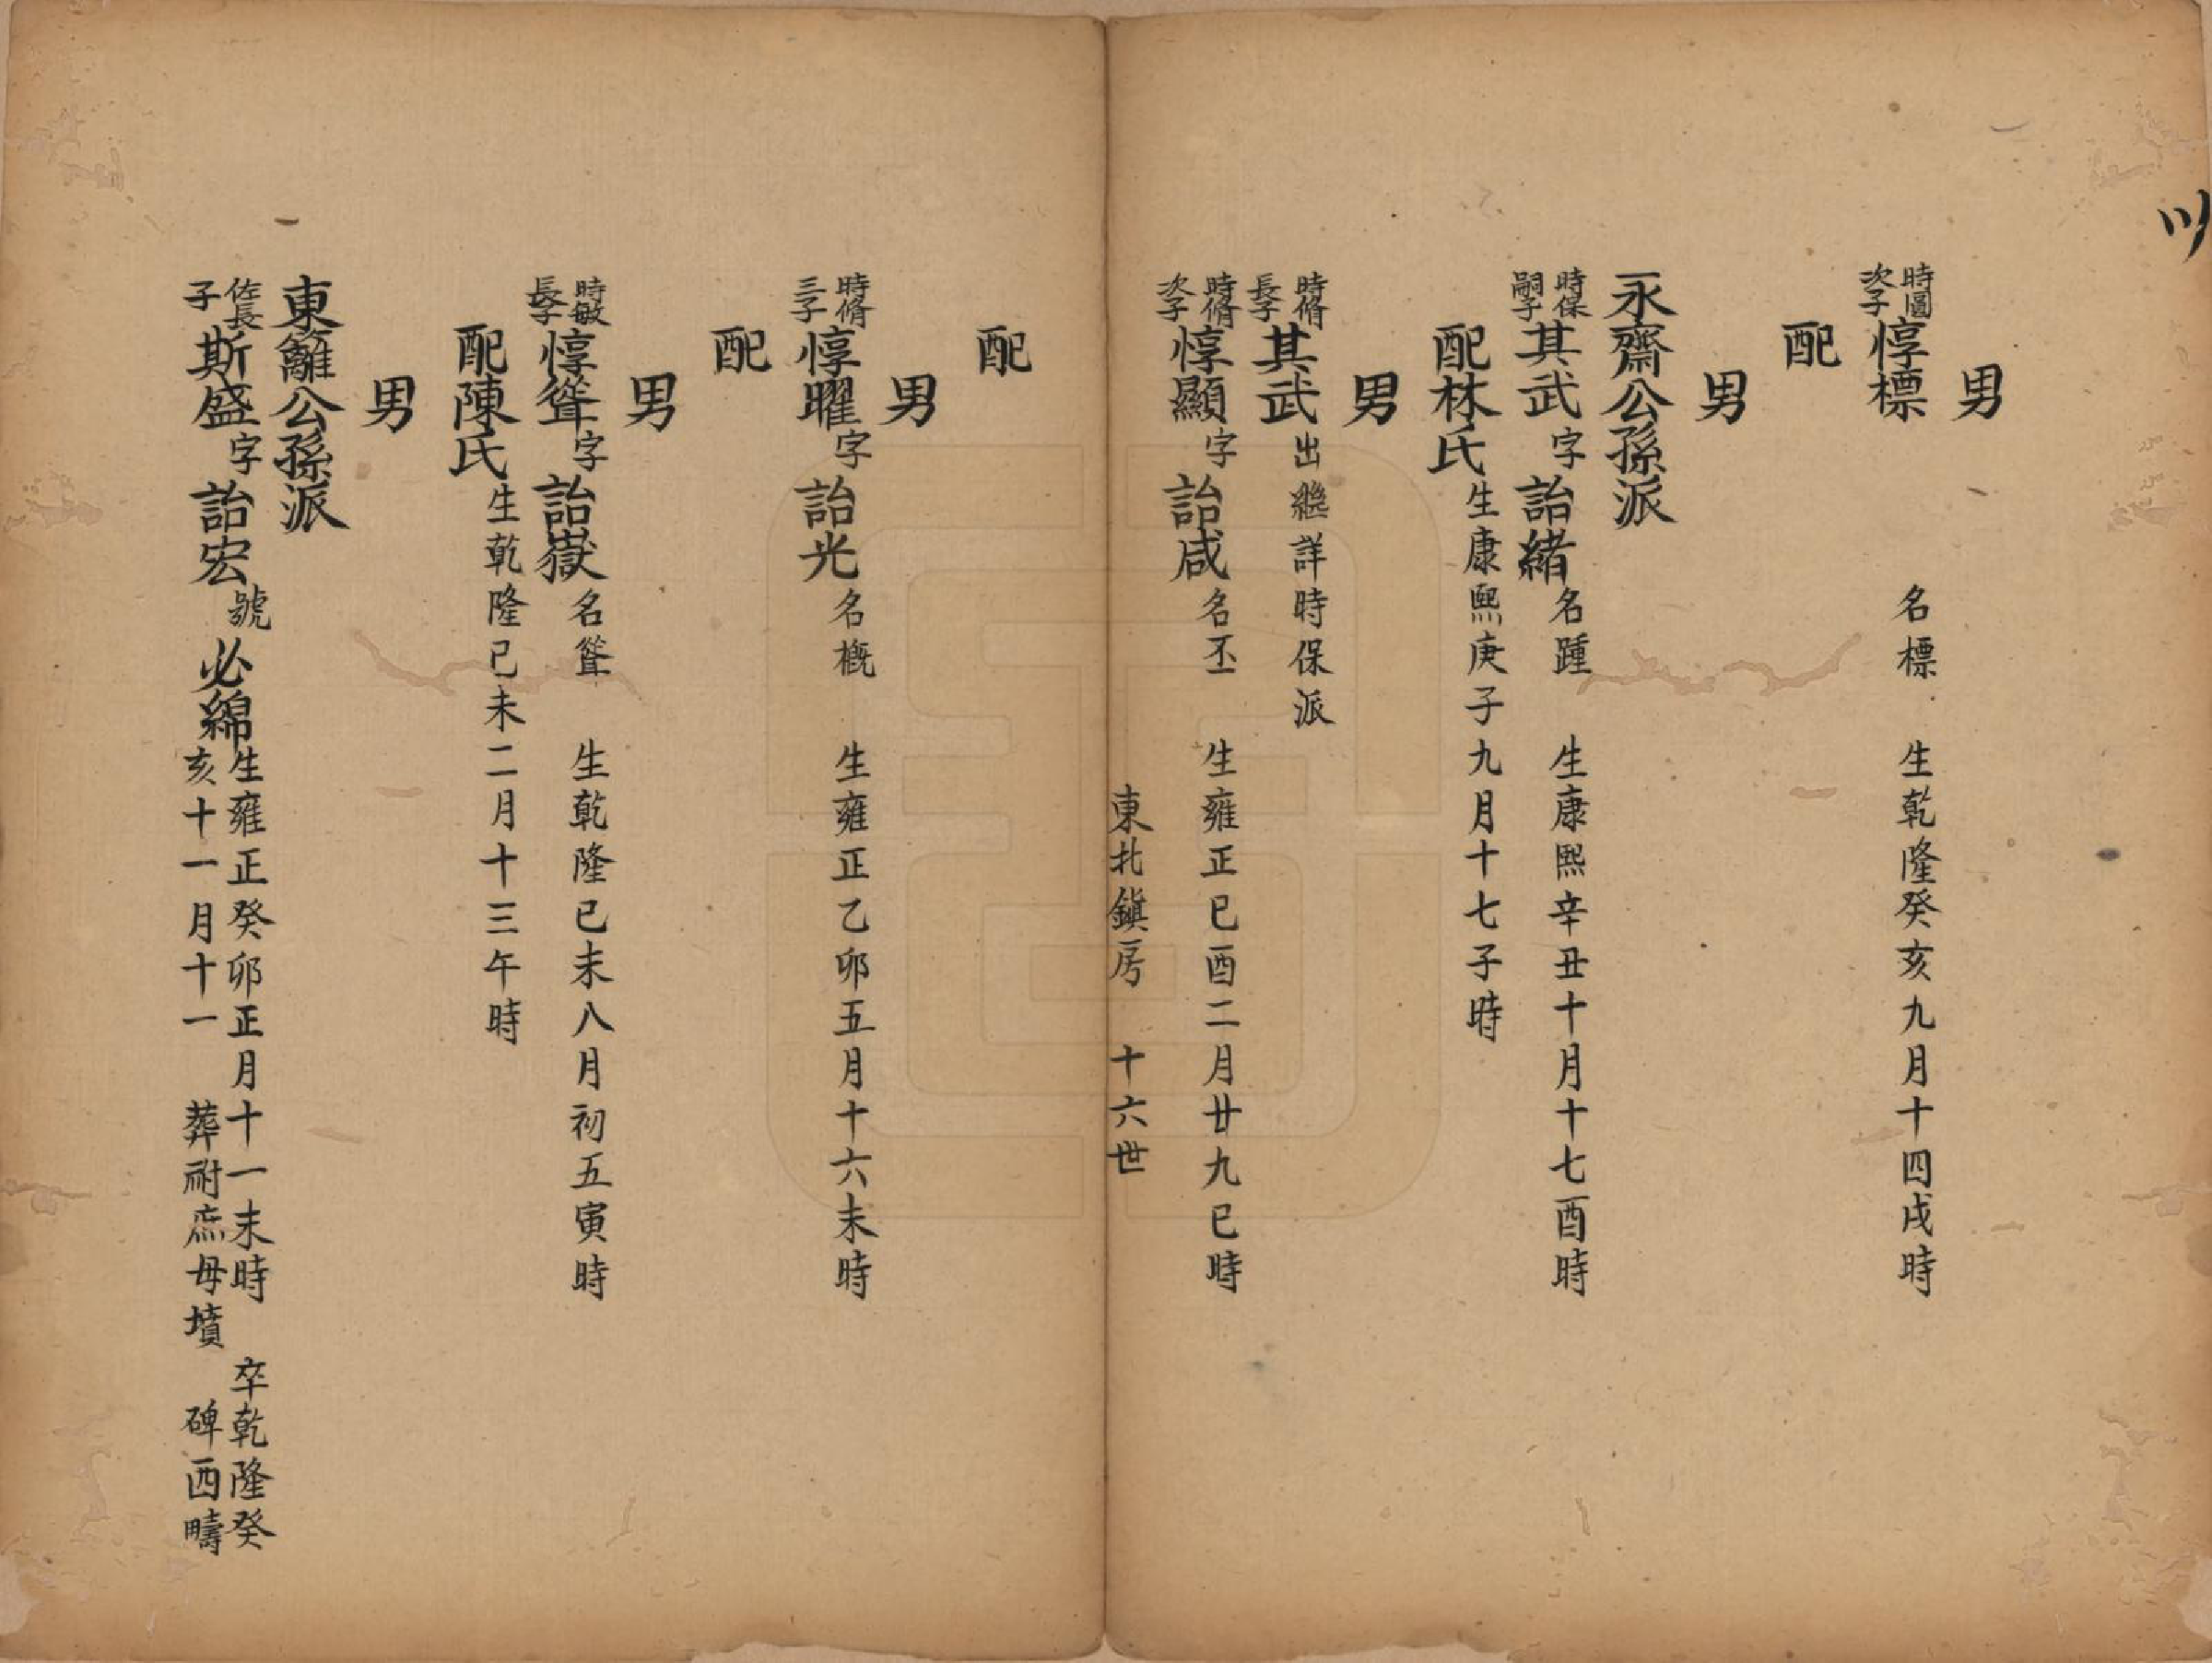 男
時圖次子惇標 名標 生乾隆癸亥九月十四戌時
配
男
永齋公孫派
時保嗣子其武字詒緒名踵 生康熙辛丑十月十七酉時
配林氏生康熙庚子九月十七子時
男
時脩長子其武出繼詳時保派
時脩次子惇顯字詒咸名丕 生雍正巳酉二月廿九巳時
東北鎮房 十六世
配
男
時脩三子惇曜字詒光名概 生雍正乙卯五月十六未時
配
男
時敏長子惇聳字詒嶽名聳 生乾隆巳未八月初五寅時
配陳氏生乾隆巳未二月十三午時
男
東籬公孫派
佐長子斯盛字詒宏號必綿生雍正癸卯正月十一未時 卒乾隆癸
亥十一月十一 葬祔庶母墳 碑西疇